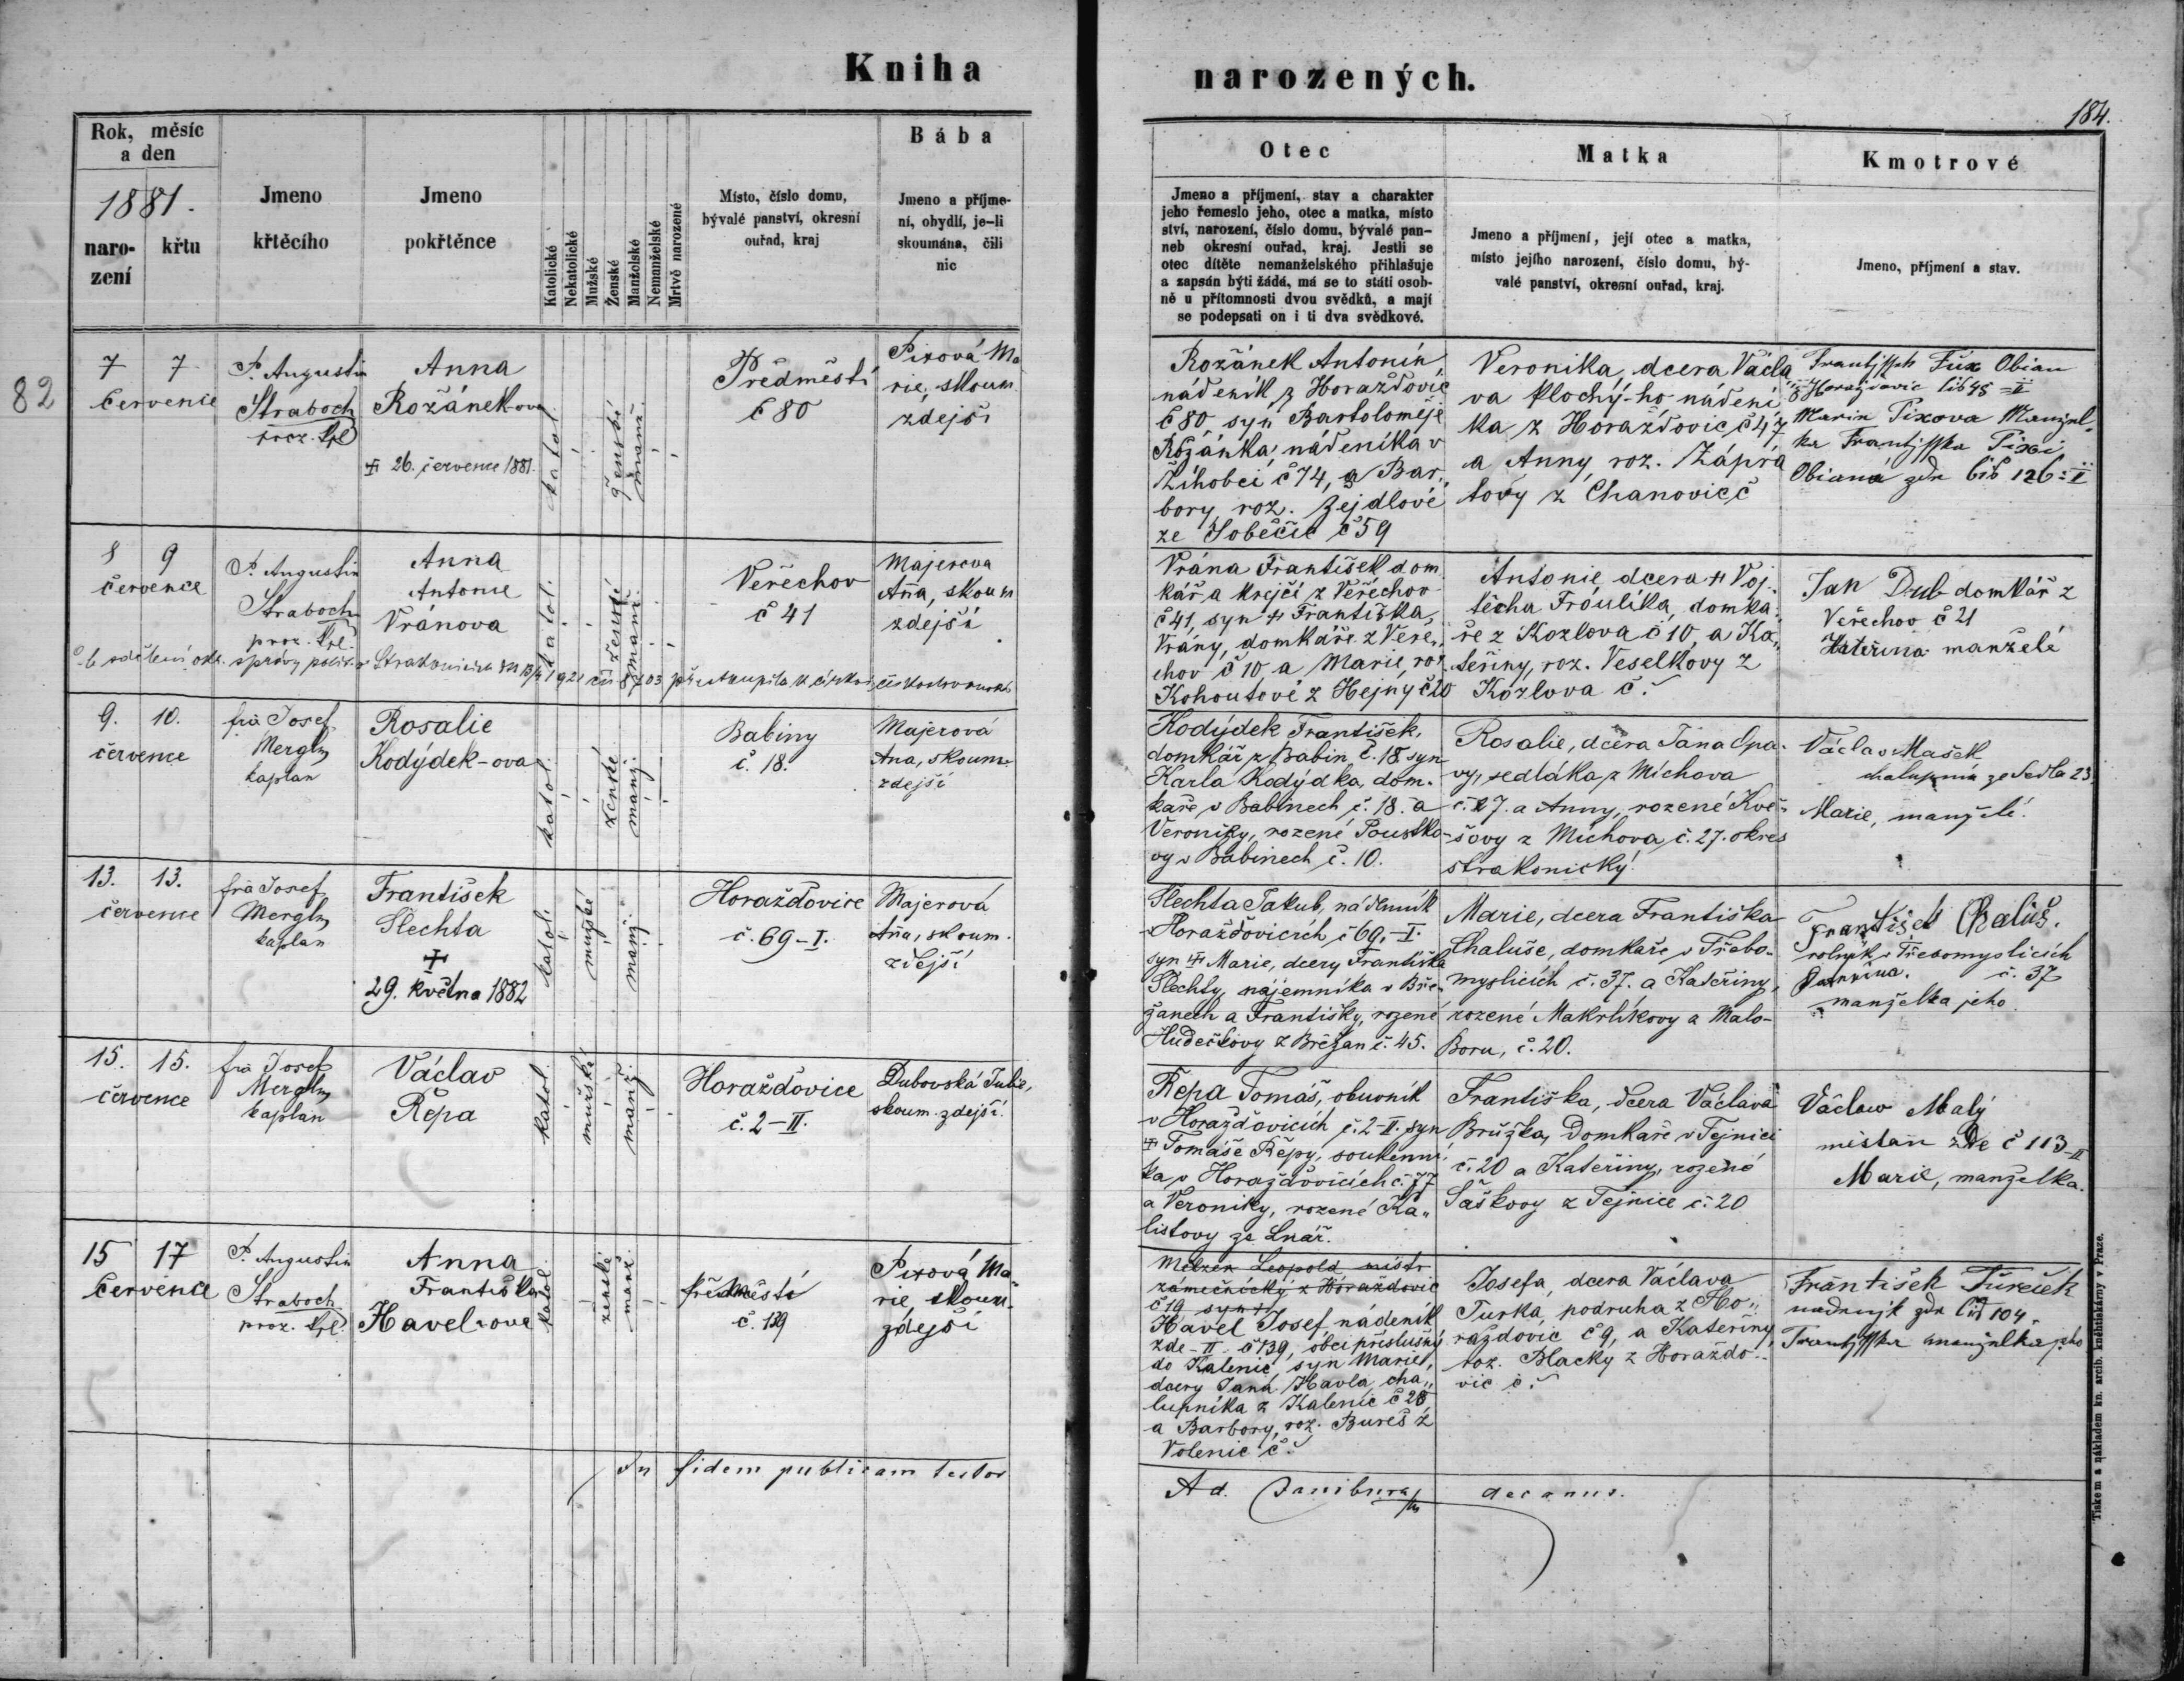 Kniha
narozených.
184.
82
Rok, měsíc
a den
1881.
naro-
zení
křtu
Jmeno
křtěcího
Jmeno
pokřtěnce
Katolické
Nekatolické
Mužské
Ženské
Manželské
Nemanželské
Mrtvě narozené
Místo, číslo domu,
bývalé panství, okresní
ouřad, kraj
Bába
Jmeno a příjme-
ní, obydlí, je-li
skoumána, čili
nic
Otec
Jmeno a příjmení, stav a charakter
jeho řemeslo jeho, otec a matka, místo
ství, narození, číslo domu, bývalé pan-
neb okresní ouřad, kraj. Jestli se
otec dítěte nemanželského přihlašuje
a zapsán býti žádá, má se to státi osob-
ně u přítomnosti dvou svědků, a mají
se podepsati on i ti dva svědkové.
Matka
Jmeno a příjmení, její otec a matka,
místo jejího narození, číslo domu, bý-
valé panství, okresní ouřad, kraj.
Kmotrové
Jmeno, příjmení a stav.
7 7
Července
P. Augustin
Straboch
Anna
Rožánek-ova
✝ 26. července 1881.
katol.
ženské
manž.
Předměstí
č 80
Pixová Ma
rie, skoum.
zdejší
Rožánek Antonín
nádeník z Horažďovic
č 80, syn Bartoloměje
Rožánka, nádeníka v
Žihobci č 74, a Bar,,
bory, roz. Zejdlové
ze Soběčic č 59
Veronika, dcera Václa
va Plochý-ho nádeni
ka z Horažďovic č 47
a Anny roz. Zápra
tovy z Chanovic č
Marie Pixova Manžel-
ka Frantisska Pixi
8 9
července
P. Augustin
Straboch
proz. kpl.
Anna
Antonie
Vránova
katol.
ženské
manž.
Veřechov
č 41
Majerova
Aňa, skoum
zdejší
Vrána František dom
kář a krejčí z Veřechov
č 41, syn ✝ Františka
Vrány, domkáře z Veře,,
chov č 10 a Marie, roz
Kohoutové z Hejny č 20
Antonie dcera ✝ Voj-
těcha Froulíka, domká-
ře z Kozlova č 10, a Ka,,
teřiny, roz. Veselkovy z
Kozlova č.
Jan Dub domkář z
Veřechov č 21
Kateřina manželé
9. 10.
července
frà Josef
Mergl
kaplan
Rosalie
Kodýdek-ova
katol.
ženské
manž.
Babiny
č. 18.
Majerová
Ana, skoum.
zdejší
Kodýdek František,
domkář z Babin č. 18 syn
Karla Kodýdka, dom-
kaře v Babinech č. 18. a
Veroniky, rozené Poustko-
vy v Babinech č. 10.
Rosalie, dcera Jana Opa-
vy, sedláka z Míchova
č. 27. a Anny, rozené Kve-
šovy z Míchova č. 27. okres
strakonický.
Václav Mašek
chalupník ze Sedla 23
Marie, manželé.
13. 13.
července
frà Josef
Mergl
kaplan
František
Šlechta
✝
29. května 1882
katol.
mužské
manž.
Horažďovice
č. 69-I.
Majerová
Aňa, skoum.
zdejší
Šlechta Jakub, nádenník
v Horažďovicích č 69.-I.
syn ✝ Marie, dcery Františka
Šlechty, nájemníka v Bře-
žanech a Františky, rozené
Hudečkovy z Brěžan č. 45.
Marie, dcera Františka
Chaluše, domkaře v Třebo-
myslicích č. 37. a Kateřiny,
rozené Makrlíkovy z Malo-
Boru, č. 20.
František Chaluš.
rolník v Třebomyslicích
č. 37
manželka jeho
15. 15.
července
frà Josef
Mergl
kaplan
Václav
Řepa
katol.
mužské
manž.
Horažďovice
č. 2-II.
Dubovská Julie,
skoum. zdejší.
Řepa Tomáš, obuvník
v Horažďovicích č. 2-II. syn
✝ Tomáše Řepy, soukenní-
ka v Horažďovicích č. 77
a Veroniky, rozené Ka,,
listovy ze Lnář.
Františka, dcera Václava
Brůžka, Domkaře v Tejnici
č. 20 a Kateřiny, rozené
Saškovy z Tejnice č. 20
Václav Malý
měšťan zde č 113-II
Marie, manželka.
15 17
Července
P. Augustin
Straboch
proz. kpl.
Anna
Františka
Havel-ova
katol.
ženské
manž.
předměstí
č. 139
Pixová Ma,,
rie, skoum.
zdejší
Melzer Leopold mistr
zámečnický z Horažďovic
č 19 syn ✝
Havel Josef nádeník
zde-II. č 139, obci příslušný
do Kalenic syn Marie,
dcery Jana Havla, cha,,
lupníka z Kalenic č 28
a Barbory, roz. Bureš z
Volenic č.
Josefa, dcera Václava
Turka, podruha z Ho,,
ražďovic č 9, a Kateřiny,
roz. Blacky z Horažďo-
vic č.
František Tureček
Frantisska manželka jeho
In fidem publicam testor
Ad. decanus.
Tiskem a nákladem kn. arcib. kněhtiskárny v Praze.